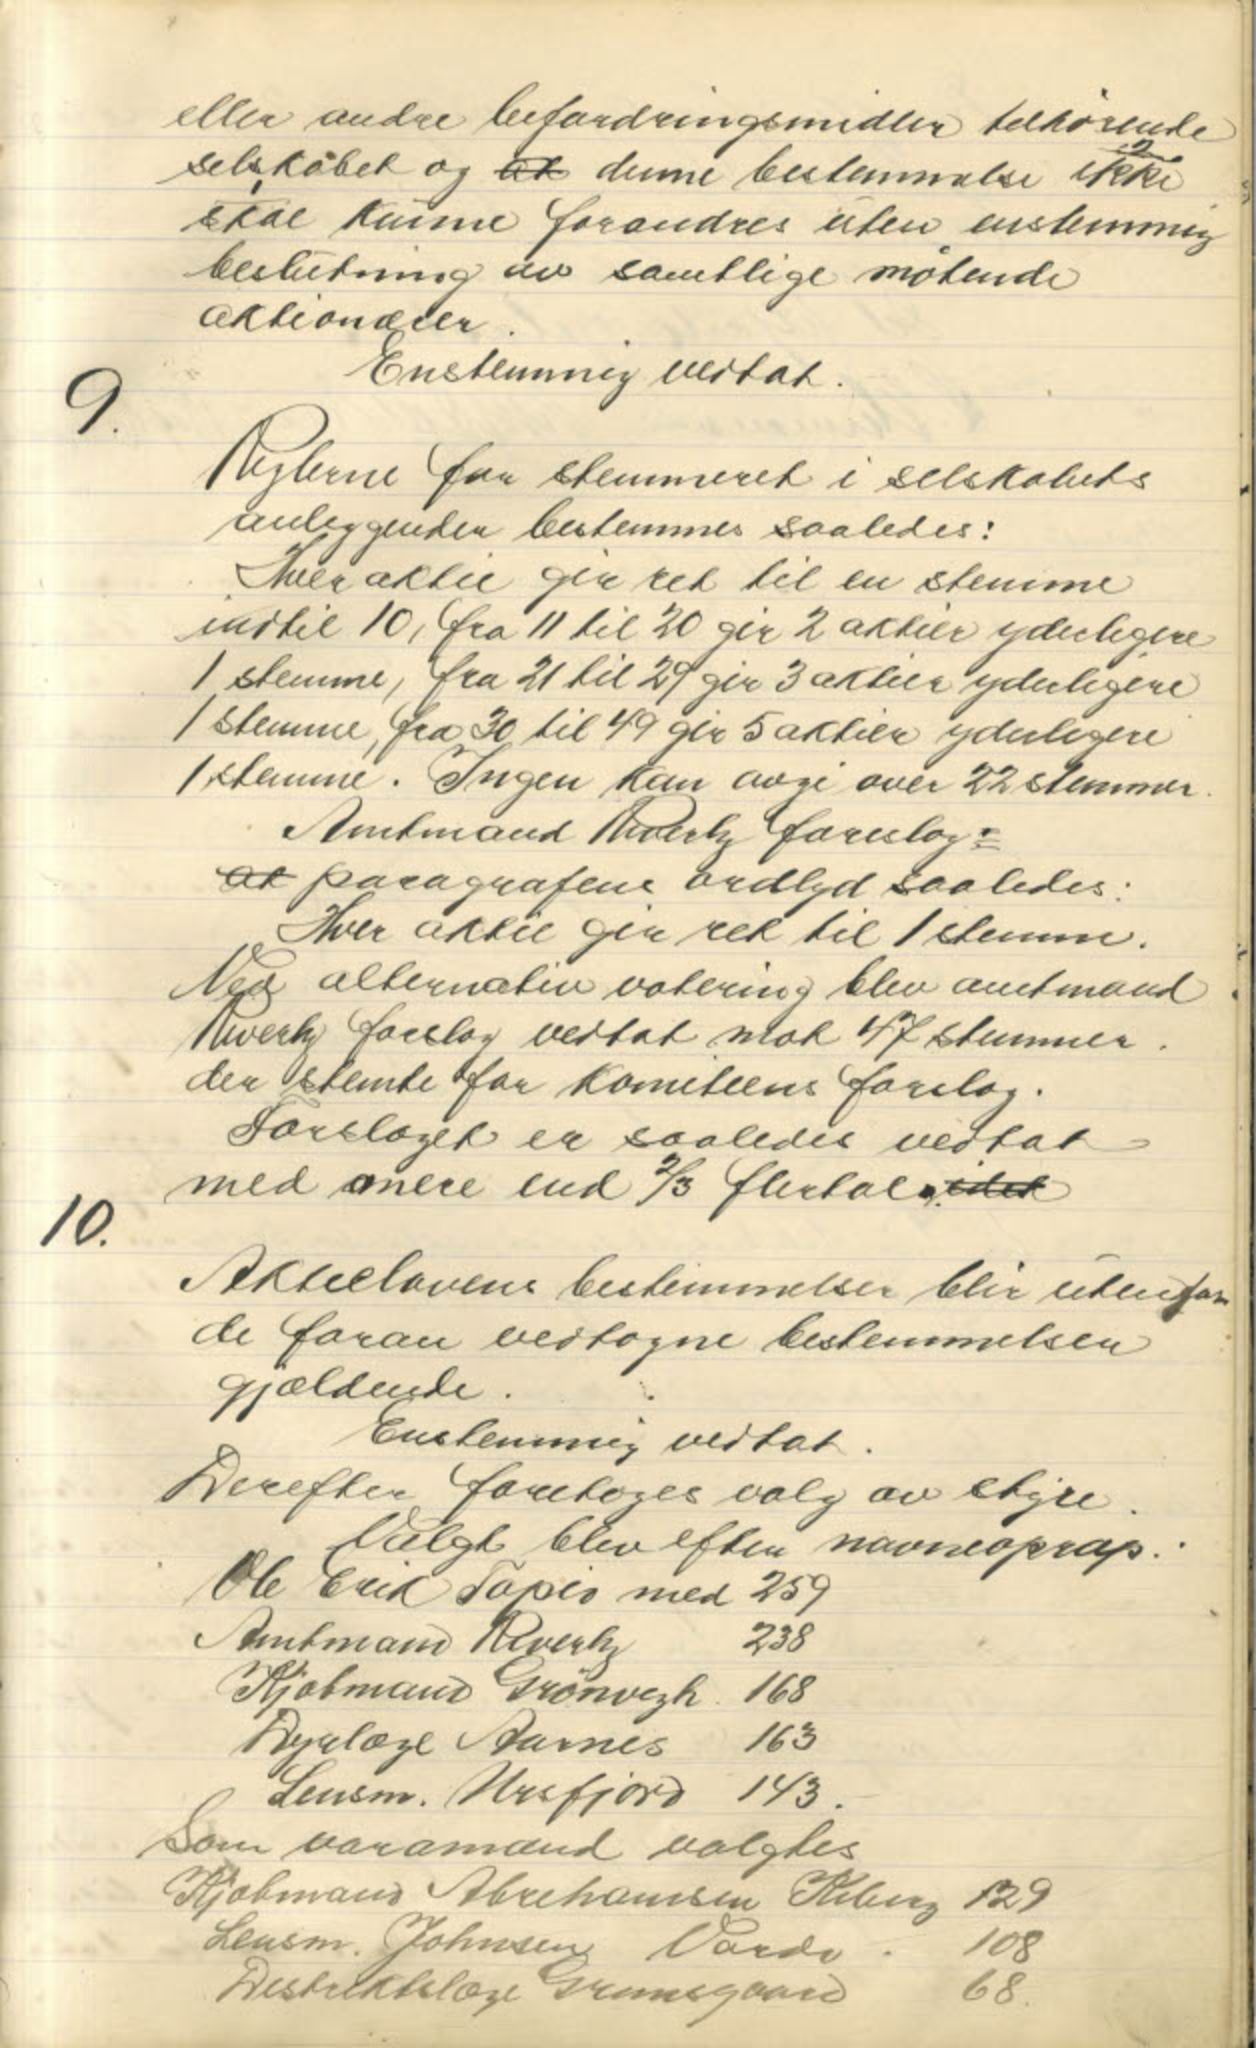 eller andre befordringsmidler tilhörende
selskabet og at denne bestemmelse ikke
skal kunne forandres uten enstemmig
beslutning av samtlige mötende
aktionærer.
Enstemmig vedtat.
9.
Reglerne for stemmeret i selskabets
anleggender bestemmes saaledes:
Hver aktie gir ret til en stemme
indtil 10, fra 11 til 20 gir 2 aktier yderligere
1 stemme, fra 21 til 29 gir 3 aktier yderligere
1 stemme, fra 30 til 49 gir 5 aktier yderligere
1 stemme. Ingen kan avgi over 22 stemmer.
Amtmand Rivertz foreslog:
at paragrafens ordlyd saaledes:
Hver aktie gir ret til 1 stemme.
Ved alternativ votering blev amtmand
Rivertz forslag vedtat mot 47 stemmer.
der stemte for komiteens forslag.
Forslaget er saaledes vedtat
med mere end 2/3 flertal. idet
10.
Aktielovens bestemmelser blir utenfor
de foran vedtagne bestemmelser
gjældende.
Enstemmig vedtat.
Derefter foretoges valg av styre.
Valgt blev efter navneoprap:
Ole Erik Tapio med 259
Amtmand Rivertz 238
Kjøbmand Grönvegh 168
Dyrlæge Aarnes 163
Lensm. Ursfjord 143.
Som varamænd valgtes
Kjøbmand Abrehamsen Kiberg 129
Lensm. Johnsen Vardø. 108
Destriktslæge Grimsgaard 68.